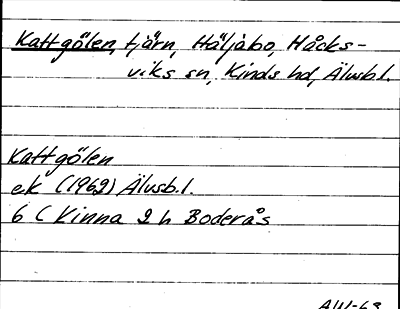 Kattgölen, tjärn, Häljabo, Håcks-
viks sn, Kinds hd, Älvsb.l.
Kattgölen
ek (1962) Älvsb.l.
6 C Kinna 2 h Boderås